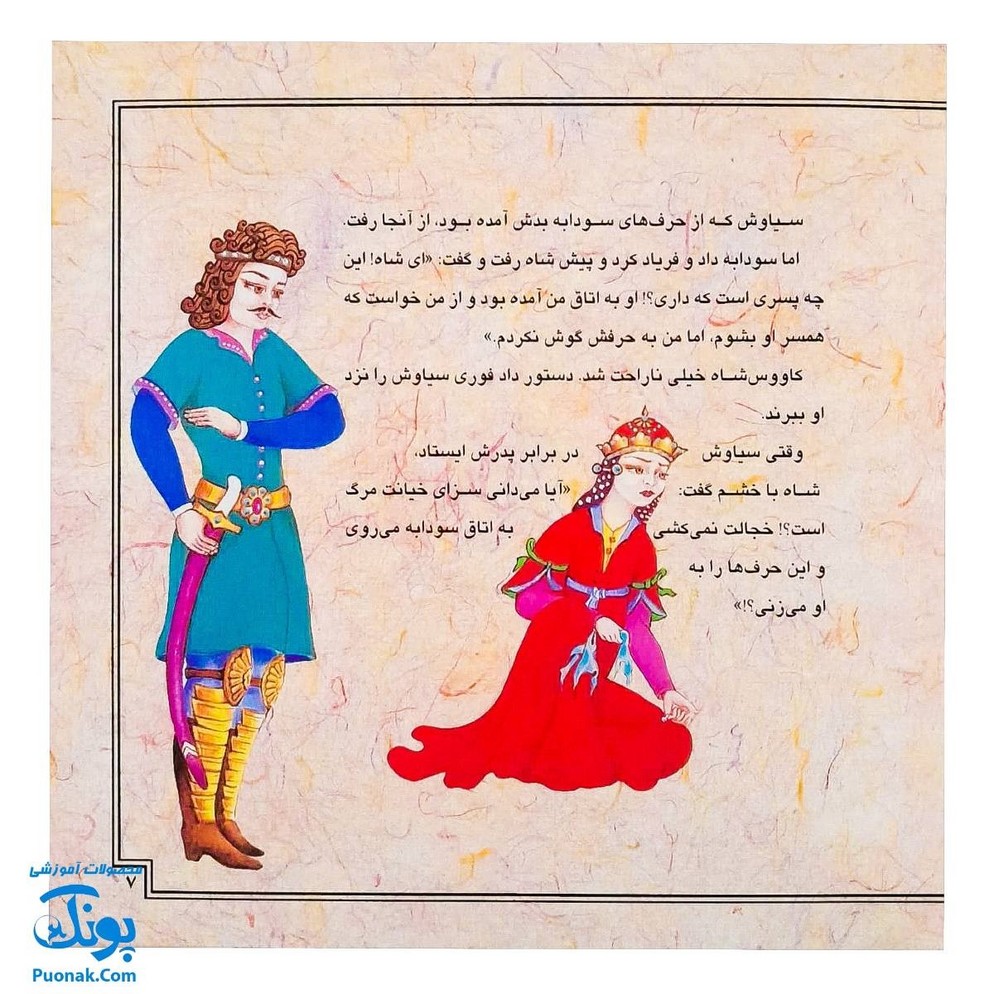 سیاوش که از حرف‌های سودابه بدش آمده بود، از آنجا رفت.
اما سودابه داد و فریاد کرد و پیش شاه رفت و گفت: «ای شاه! این
چه پسری است که داری؟! او به اتاق من آمده بود و از من خواست که
همسر او بشوم، اما من به حرفش گوش نکردم.»
کاووس‌شاه خیلی ناراحت شد. دستور داد فوری سیاوش را نزد
او ببرند.
وقتی سیاوش در برابر پدرش ایستاد،
شاه با خشم گفت: «آیا می‌دانی سزای خیانت مرگ
است؟! خجالت نمی‌کشی به اتاق سودابه می‌روی
و این حرف‌ها را به
او می‌زنی؟!»
۷
محصولات آموزشی
پونک
Puonak.Com